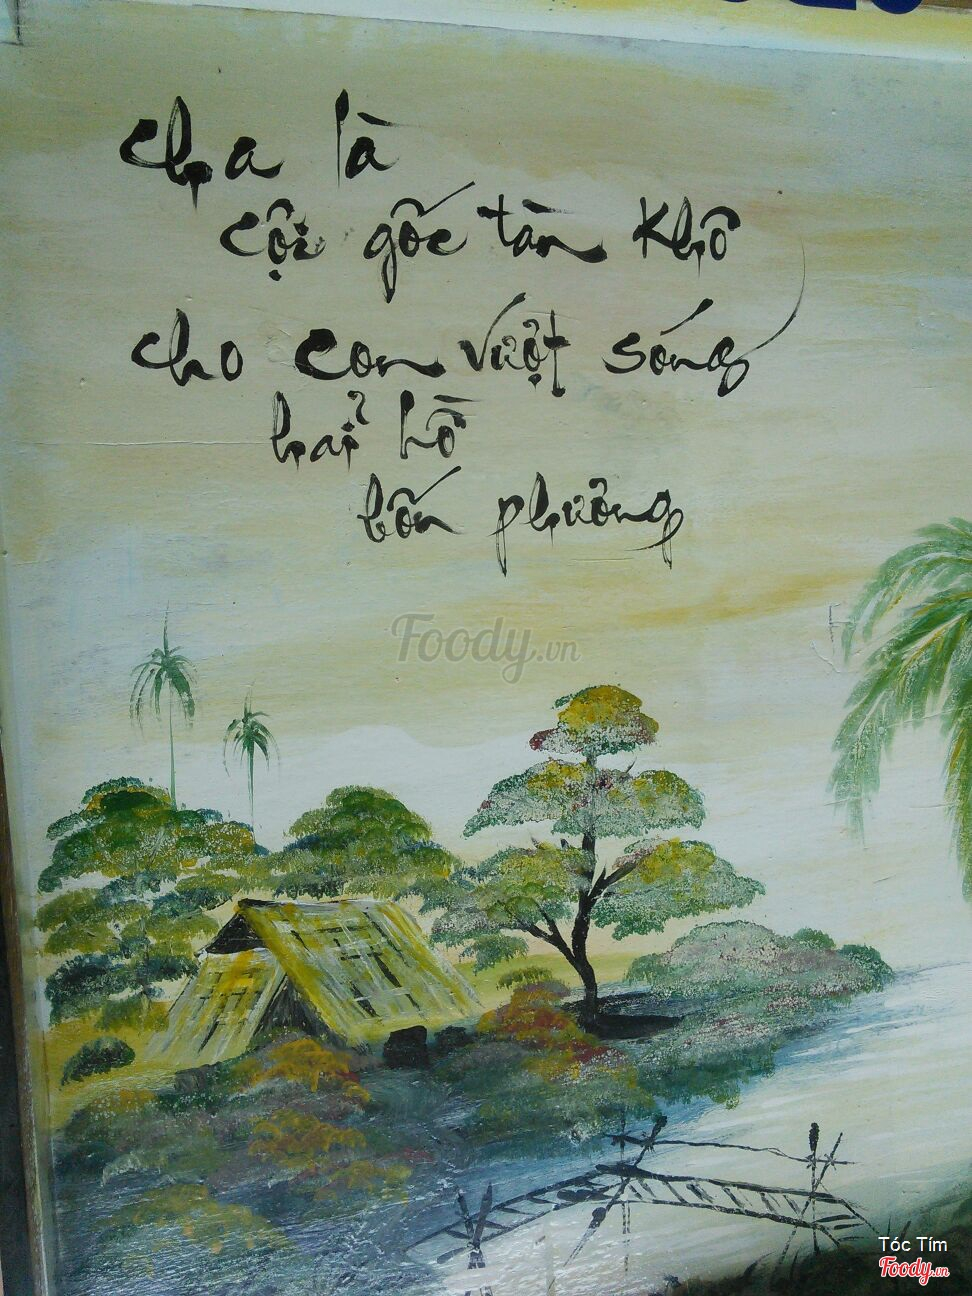 cha là
cội gốc tàn khô
cho con vượt sóng
hải hồ
bốn phương
Foody.vn
Tóc Tím
Foody.vn